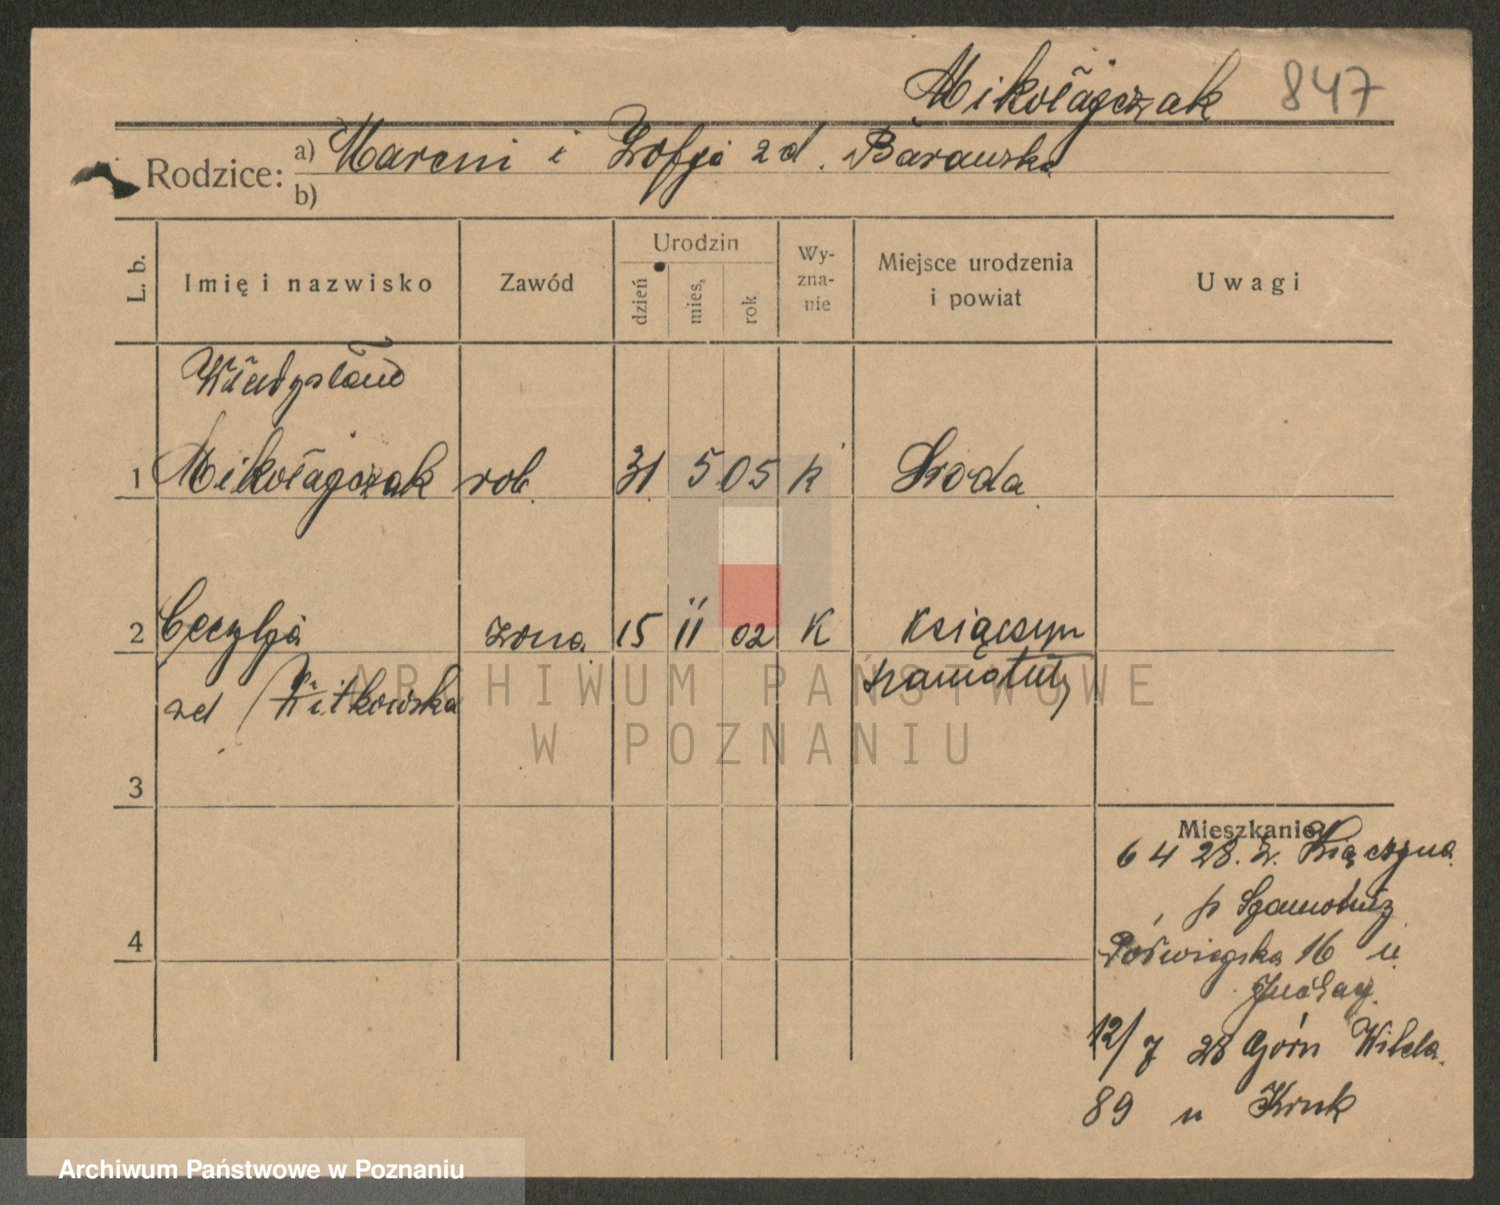 Mikołajczak 847
Rodzice: a) Marcin i Zofja zd. Barańska
b)
L. b. Imię i nazwisko Zawód Urodzin dzień mies. rok Wy-zna-nie Miejsce urodzenia i powiat Uwagi
Władysław
1 Mikołajczak rob. 31 5 05 k Środa
2 Cecylja żona 15 11 02 K Książczyn
zd Witkowska Szamotuły
ARCHIWUM PAŃSTWOWE
W POZNANIU
3
Mieszkanie
6 4 28. z.
p Szamotuły
4
16 u
12/7 28 Górn Wilda
89 u Kruk
Archiwum Państwowe w Poznaniu